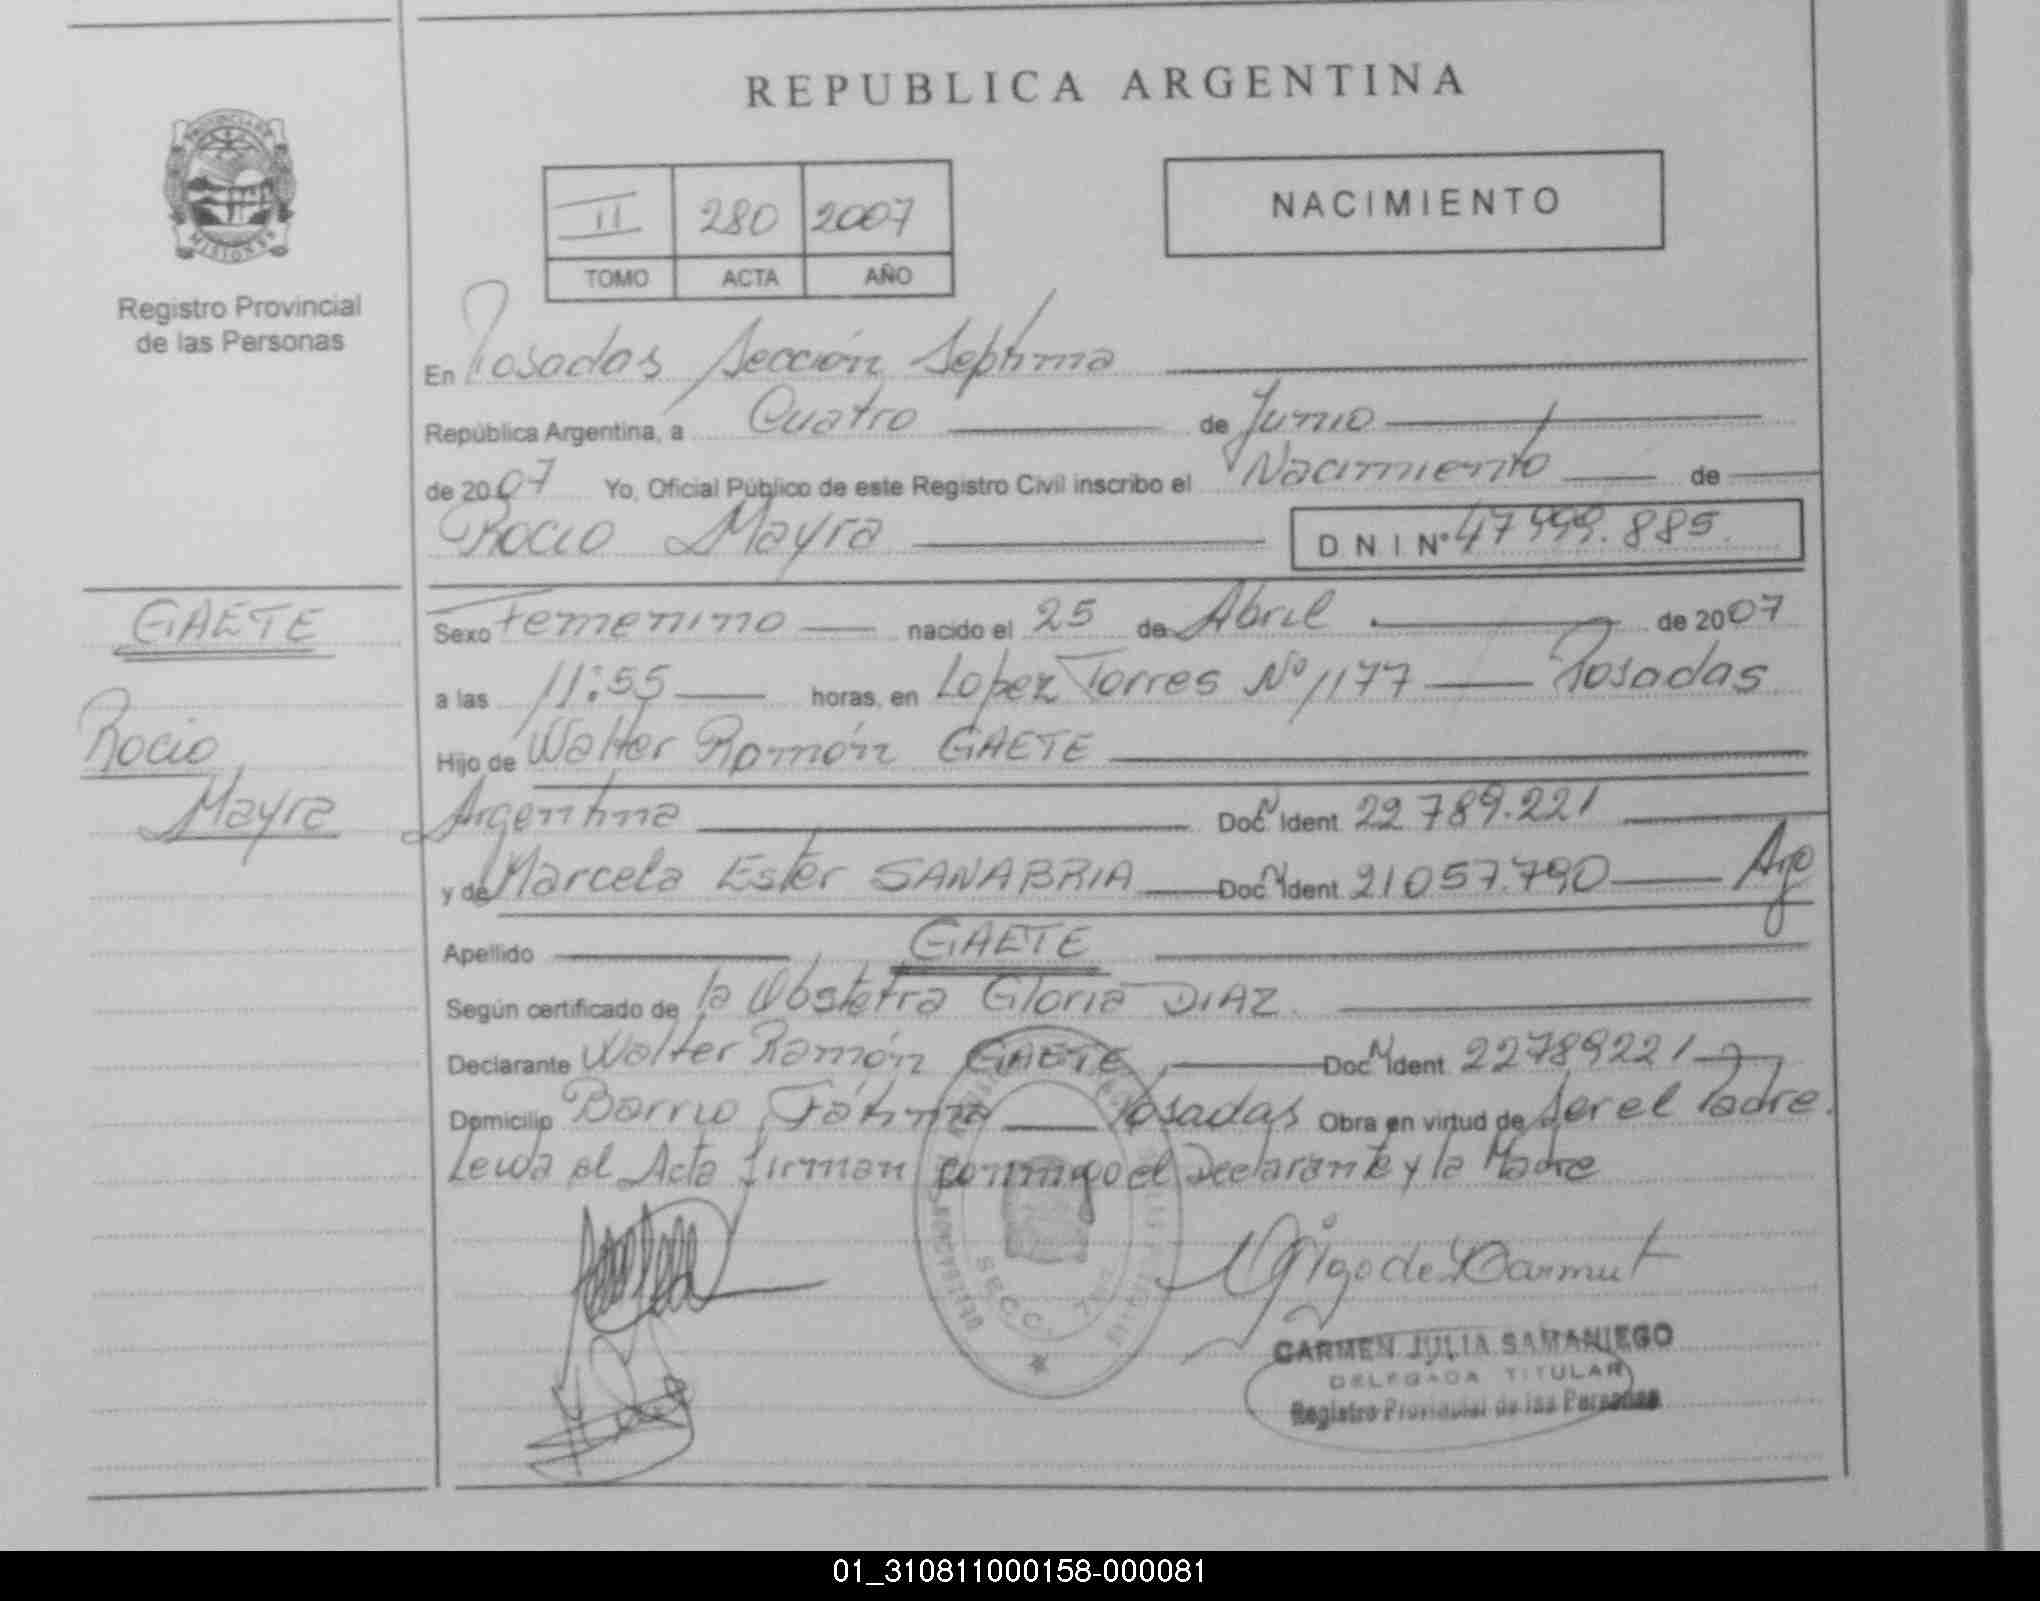 REPUBLICA ARGENTINA
PROVINCIA DE
MISIONES
Registro Provincial
de las Personas
II 280 2007
TOMO ACTA AÑO
NACIMIENTO
En Posadas Sección Septima
República Argentina, a Cuatro de Junio
de 2007 Yo, Oficial Público de este Registro Civil inscribo el Nacimiento de
Rocio Mayra
D N I Nº 47.999.885.
GAETE
Rocio
Mayra
Sexo Femenino nacido el 25 de Abril de 2007
a las 11:55 horas, en Lopez Torres Nº 1177 Posadas
Hijo de Walter Ramón GAETE
Argentina Doc. N Ident 22.789.221
y de Marcela Ester SANABRIA Doc. N Ident 21057.790 Arg
Apellido GAETE
Según certificado de la Obstetra Gloria DIAZ.
Declarante Walter Ramón GAETE Doc. N Ident 22789221
Domicilio Barrio Fátima Posadas Obra en virtud de ser el Padre.
Leida el Acta firman conmigo el Declarante y la Madre
SECC.
CARMEN JULIA SAMANIEGO
DELEGADA TITULAR
Registro Provincial de las Personas
01_310811000158-000081